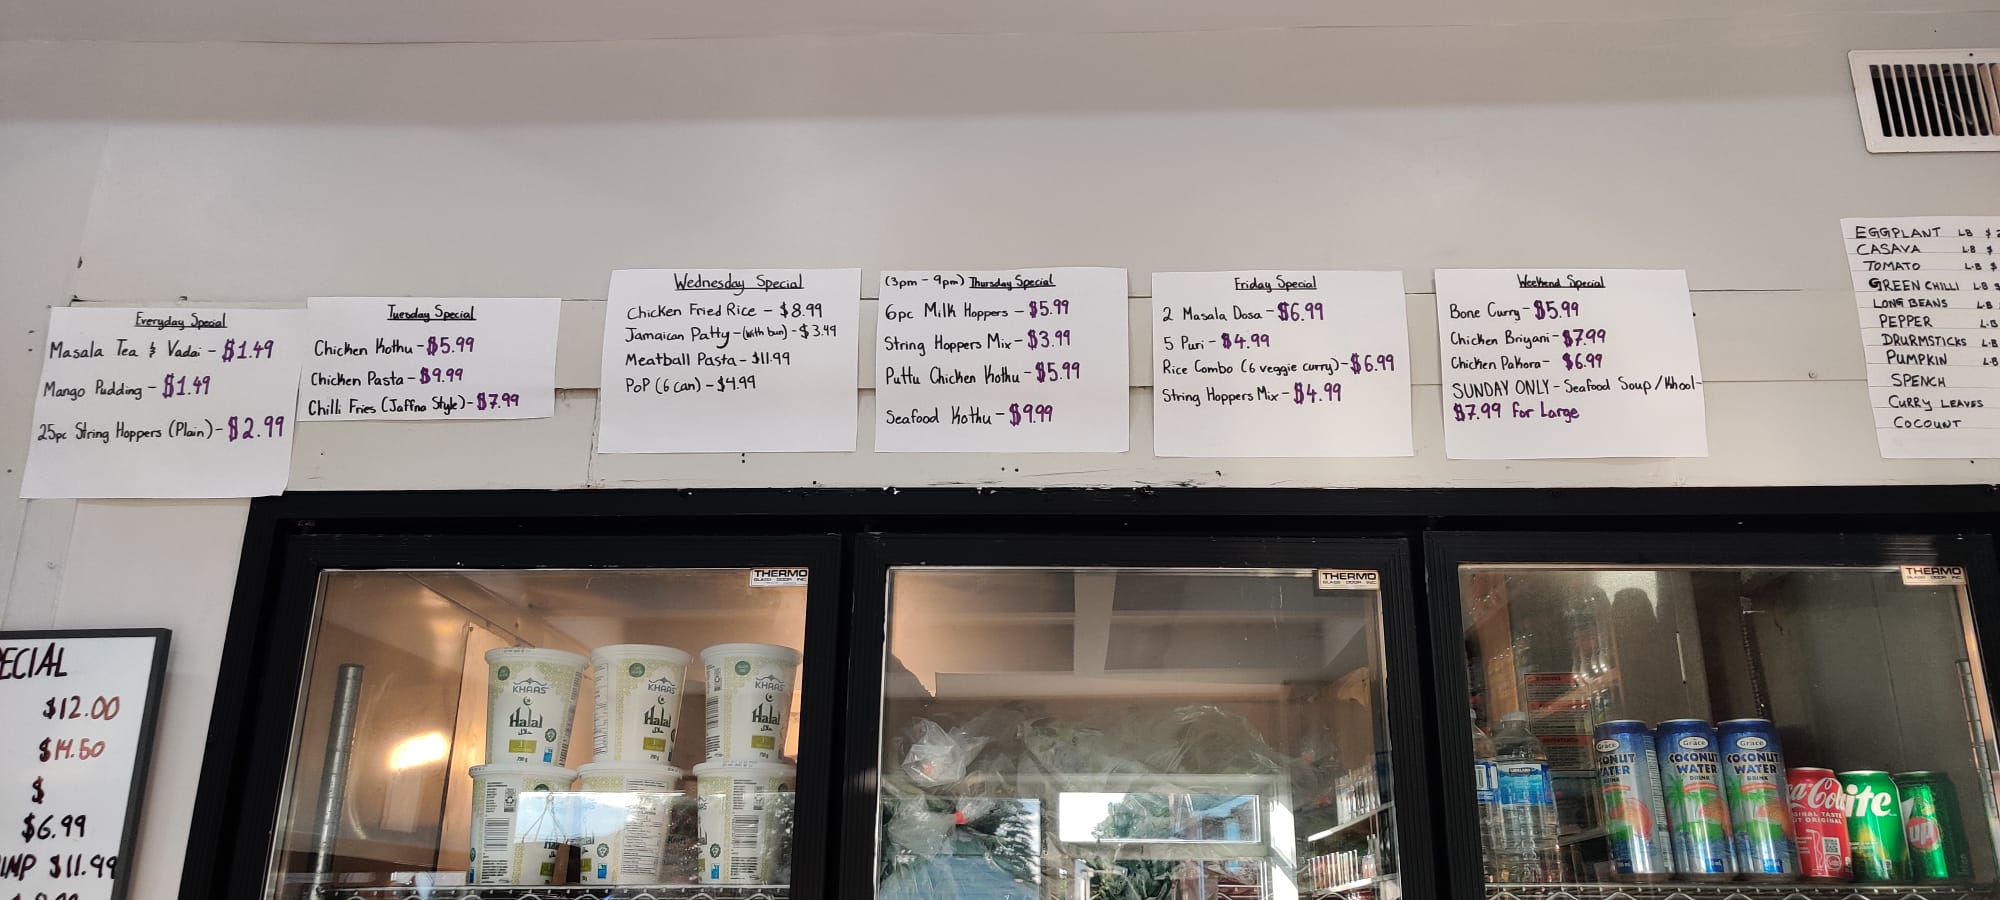 Everyday Special
Masala Tea & Vadai - $1.49
Mango Pudding - $1.49
25pc String Hoppers (Plain) - $2.99
Tuesday Special
Chicken Kothu - $5.99
Chicken Pasta - $9.99
Chilli Fries (Jaffna Style) - $7.99
Wednesday Special
Chicken Fried Rice - $8.99
Jamaican Patty - (with bun) - $3.49
Meatball Pasta - $11.99
PoP (6 can) - $4.99
(3pm - 9pm) Thursday Special
6pc Milk Hoppers - $5.99
String Hoppers Mix - $3.99
Puttu Chicken Kothu - $5.99
Seafood Kothu - $9.99
Friday Special
2 Masala Dosa - $6.99
5 Puri - $4.99
Rice Combo (6 veggie curry) - $6.99
String Hoppers Mix - $4.99
Weekend Special
Bone Curry - $5.99
Chicken Briyani - $7.99
Chicken Pakora - $6.99
SUNDAY ONLY - Seafood Soup / Khool -
$7.99 for Large
EGGPLANT LB $
CASAVA LB $
TOMATO LB $
GREEN CHILLI LB $
LONG BEANS LB
PEPPER LB
DRURMSTICKS LB
PUMPKIN LB
SPENCH
CURRY LEAVES
COCOUNT
ECIAL
$12.00
$14.50
$
$6.99
IMP $11.99
THERMO
GLASS DOOR INC
THERMO
GLASS DOOR INC
THERMO
GLASS DOOR INC
KHAAS
Halal
حلال
750 g
KHAAS
Halal
حلال
750 g
KHAAS
Halal
حلال
750 g
KIRKLAND
Grace
COCONUT
WATER
DRINK
Grace
COCONUT
WATER
DRINK
Grace
COCONUT
WATER
DRINK
a-Col
ite
UP